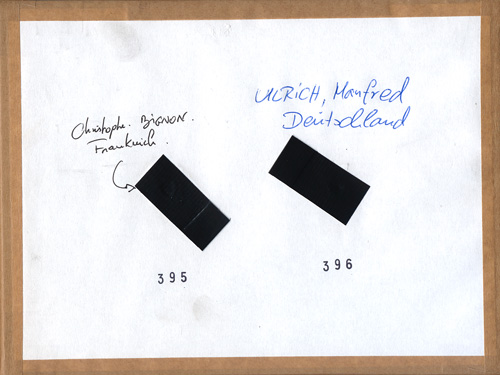 Christophe. BIGNON.
Frankreich.
ULRICH, Manfred
Deutschland
395
396